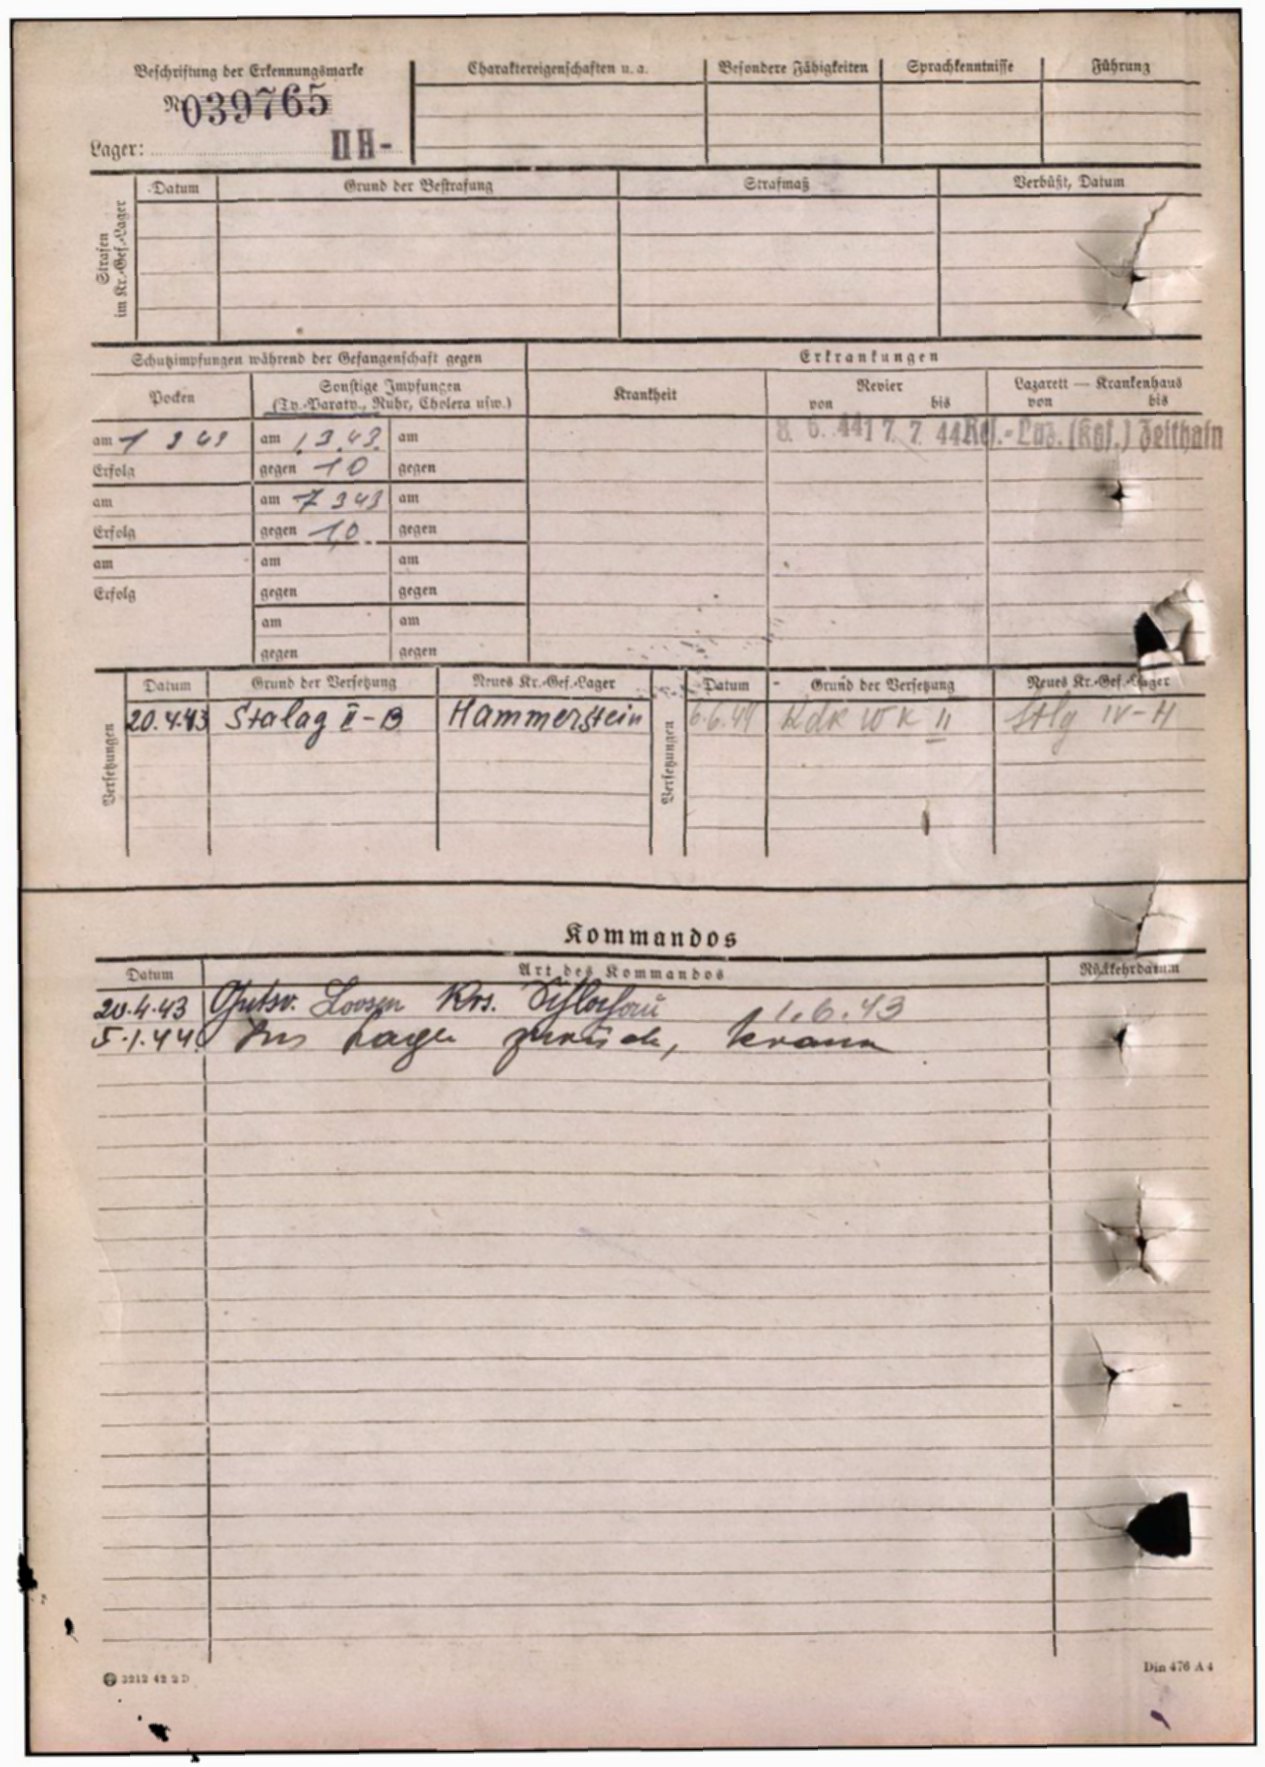 Beschriftung der Erkennungsmarke
Nr 039765
Lager: II H-
Charaktereigenschaften u. a.
Besondere Fähigkeiten
Sprachkenntnisse
Führung
Strafen im Kr.-Gef.-Lager
Datum
Grund der Bestrafung
Strafmaß
Verbüßt, Datum
Schutzimpfungen während der Gefangenschaft gegen
Erkrankungen
Pocken
Sonstige Impfungen
(Ty.-Paraty., Ruhr, Cholera usw.)
Krankheit
Revier
von bis
Lazarett — Krankenhaus
von bis
am 1 3 43 am 1.3.43. am
8. 6. 44 17. 7. 44 Res.-Laz. (Kgf.) Zeithain
Erfolg gegen 10 gegen
am am 7 3 43 am
Erfolg gegen 1,0 gegen
am am am
Erfolg gegen gegen
am am
gegen gegen
Versetzungen
Datum Grund der Versetzung Neues Kr.-Gef.-Lager
20.4.43 Stalag II-B Hammerstein
Versetzungen
Datum Grund der Versetzung Neues Kr.-Gef.-Lager
6.6.44 Kdr W K II Stlg IV-H
Kommandos
Datum Art des Kommandos Rückkehrdatum
20.4.43 Gutsv. Loosen Krs. Schlochau 1.6.43
5.1.44. Ins Lager zurück, krank
3212 42 2 D
Din 476 A 4